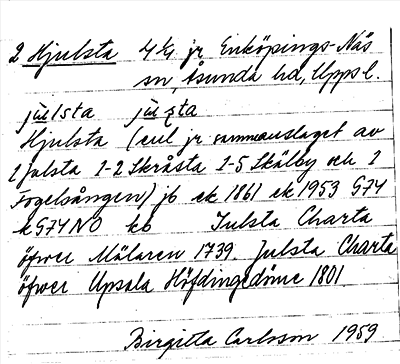 2 Hjulsta 4 4/4 jr Enköpings-Näs
sn, Åsunda hd, Uppsl.
jũlsta jũsta
Hjulsta (enl jr sammanslaget av
1 Julsta 1-2 Skråsta 1-5 Skälby och 1
Fogelsången) jb ek 1861 ek 1953 G74
kG74NO kb Julsta Charta
öfwer Mälaren 1739 Julsta Charta
öfwer Upsala Höfdingedöme 1801
Birgitta Carlsson 1959